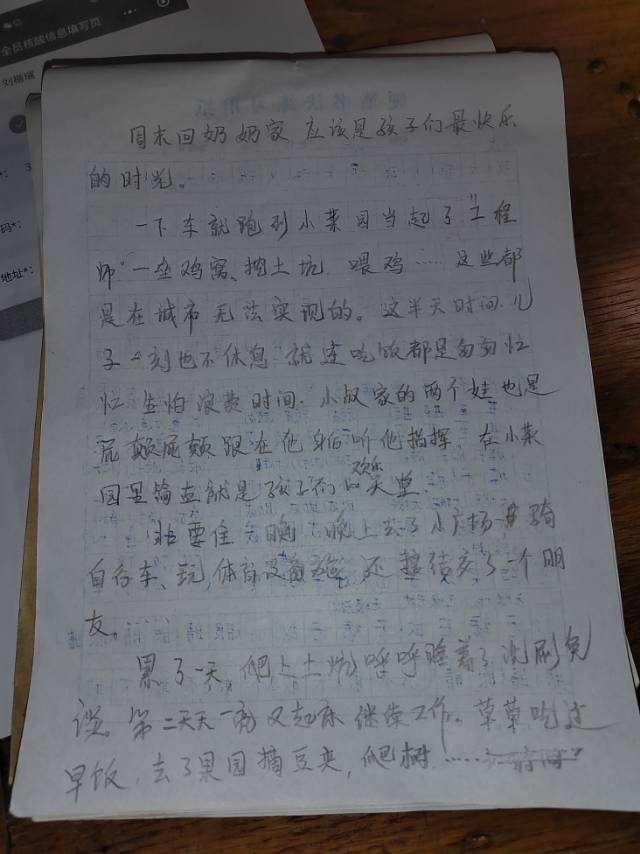 全员核酸信息填写页
刘楷瑞
码*:
地址*:
周末回奶奶家 应该是孩子们最快乐
的时光。
一下车就跑到小菜园当起了"工程
师"一垒鸡窝、挖土坑、喂鸡……这些都
是在城市无法实现的。这半天时间,儿
子一刻也不休息 就连吃饭都是匆匆忙
忙 生怕浪费时间. 小叔家的两个娃也是
屁颠屁颠跟在他身后听他指挥. 在小菜
欢乐
是孩子们的天堂.
要住一晚 晚上去了小广场 骑
自行车、玩,体育设备 还 结交了一个朋
友。
累了一天,爬上土炕呼呼睡着了洗刷免
谈。第二天天一亮又起床 继续工作。草草吃过
早饭. 去了果园摘豆夹, 爬树……